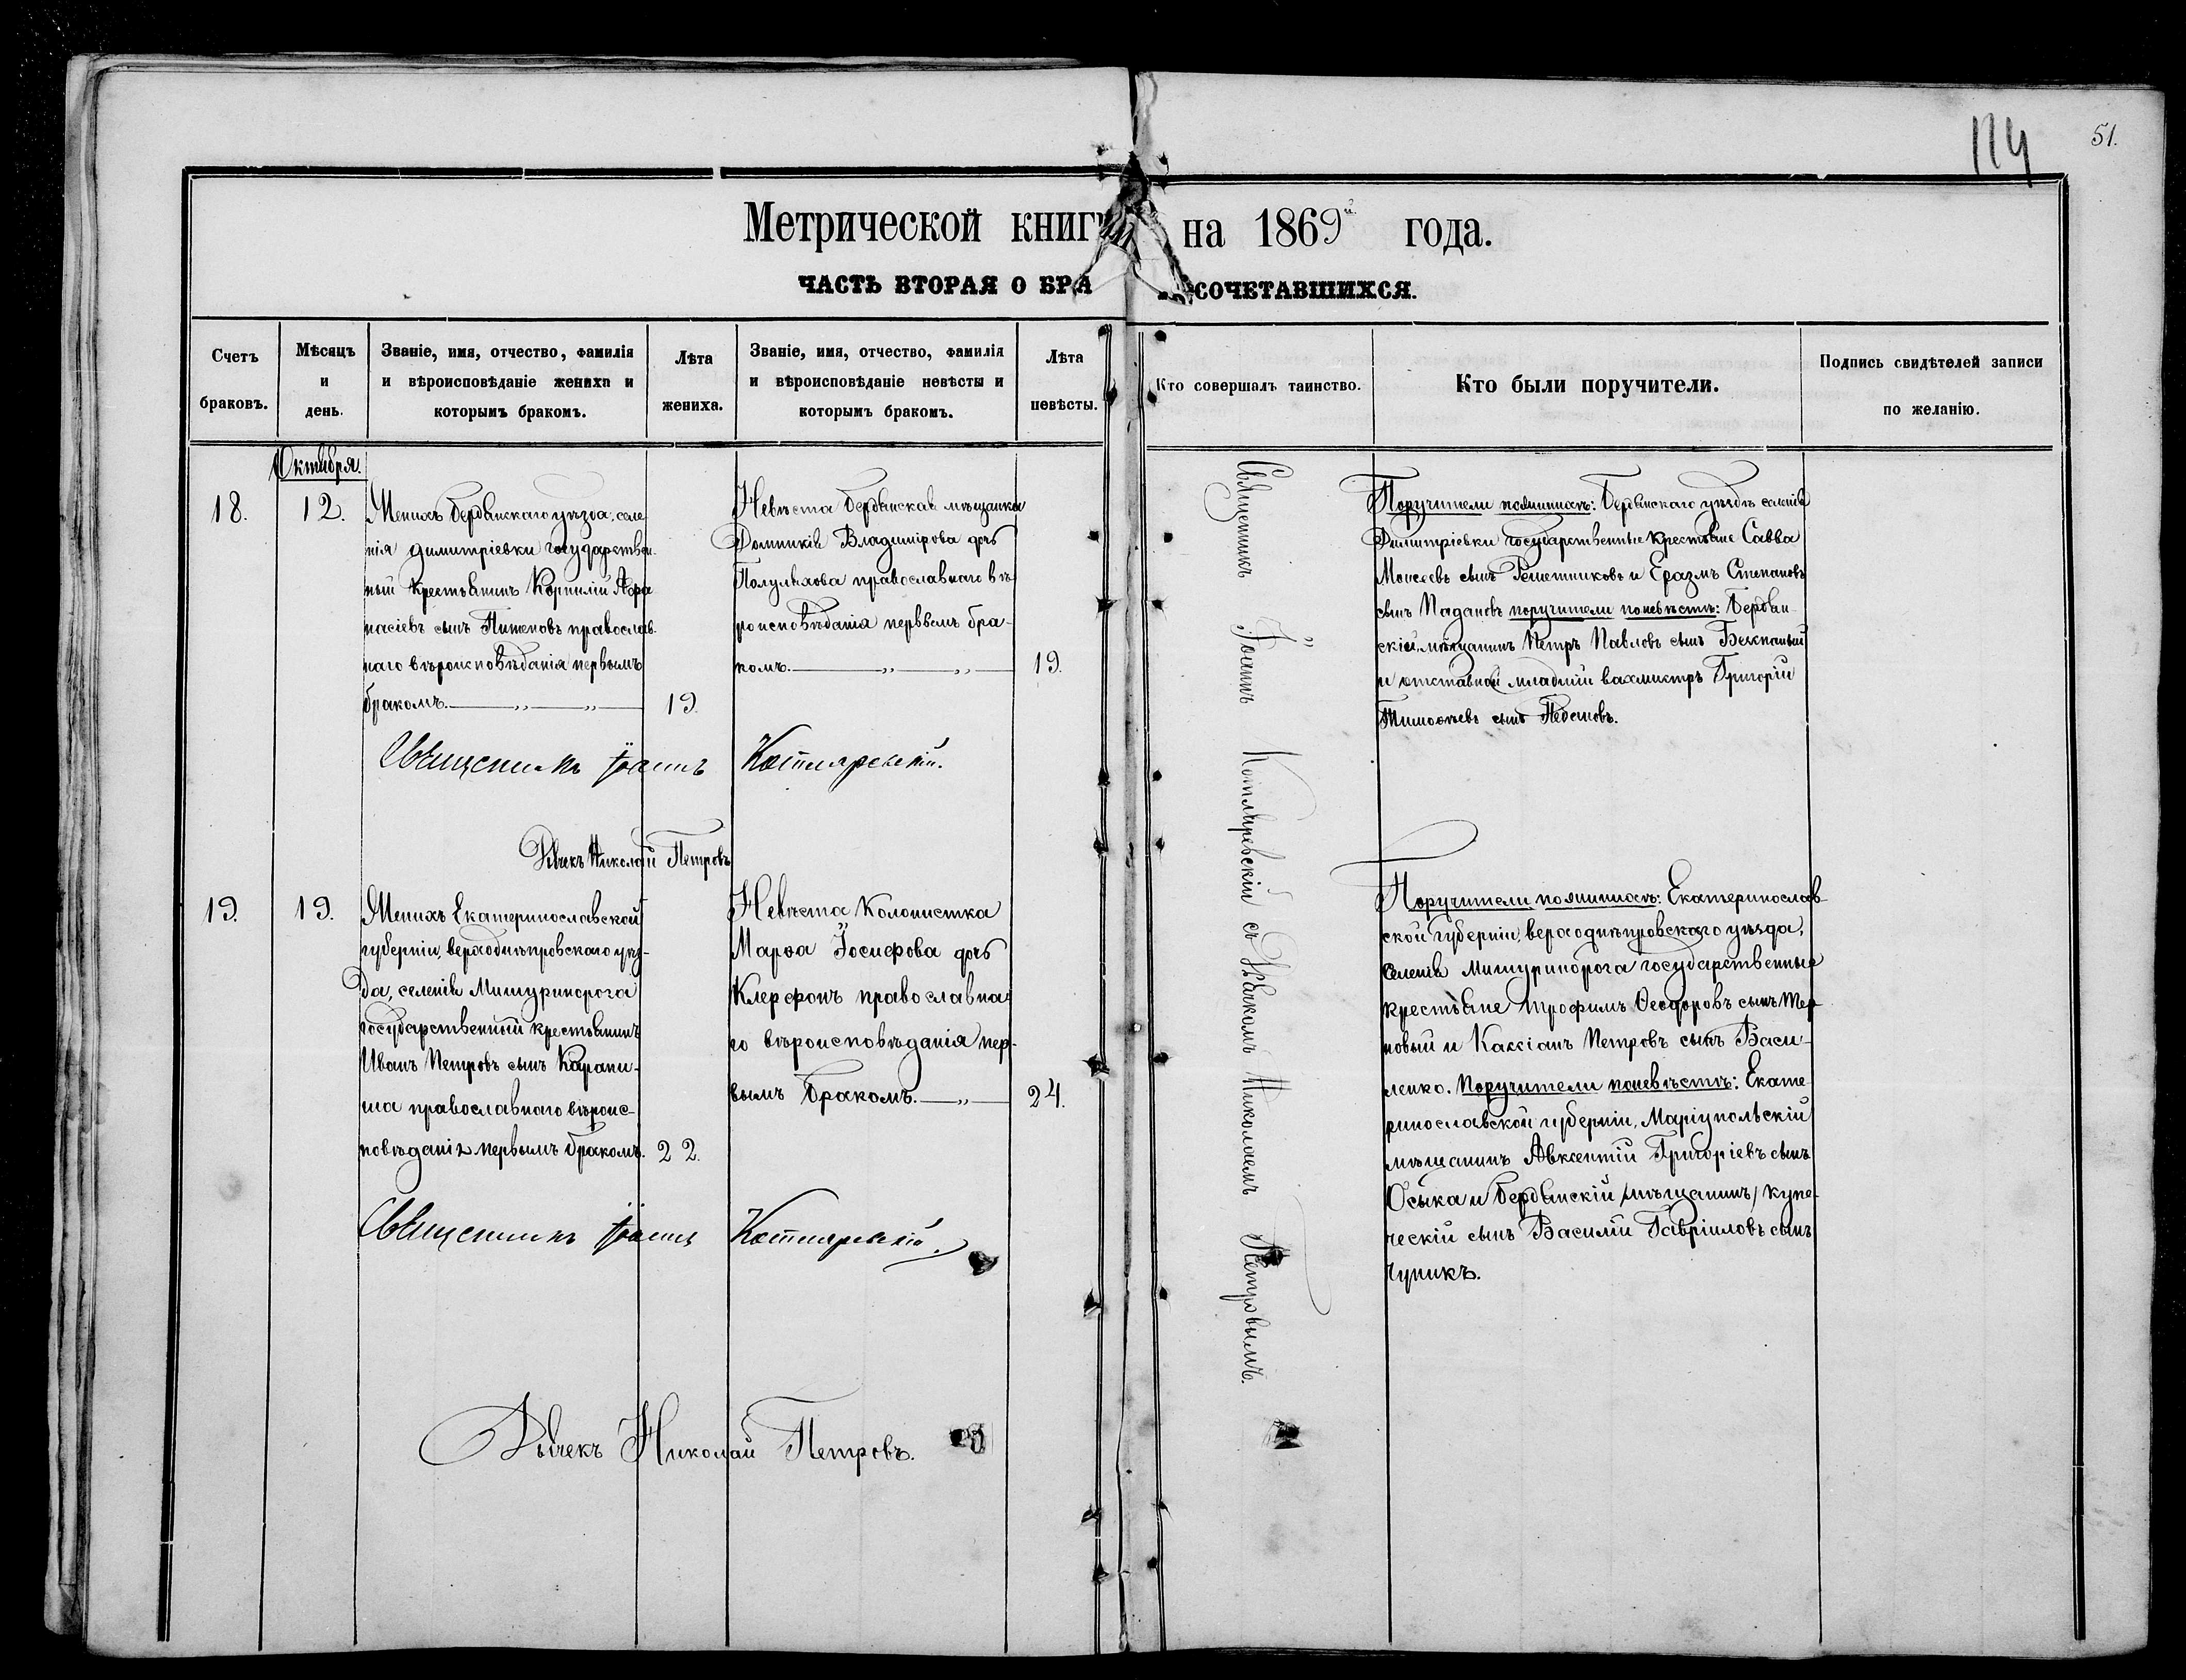 114
51.
Метрической книги на 1869й года.
ЧАСТЬ ВТОРАЯ О БРА СОЧЕТАВШИХСЯ.
Счетъ браковъ.
Мѣсяцъ и день.
Званіе, имя, отчество, фамилія и вѣроисповѣданіе жениха и которымъ бракомъ.
Лѣта жениха.
Званіе, имя, отчество, фамилія и вѣроисповѣданіе невѣсты и которымъ бракомъ.
Лѣта невѣсты.
Кто совершалъ таинство.
Кто были поручители.
Подпись свидѣтелей записи по желанію.
Октября.
18.
12.
Женихъ Бердянскаго уѣзда, селе
нія Димитріевки государствен-
ный крестьянинъ Корнилій Афа
насіевъ сынъ православ-
наго вѣроисповѣданія первымъ
бракомъ. 19.
Невѣста Бердянская мѣщанка
Домникія Владимірова дочь
Полуляхова православнаго вѣ
роисповѣданія первымъ бра-
комъ. 19.
Священникъ Іоаннъ Котляревскій.
Дьячекъ Николай Петровъ
Священникъ Іоаннъ Котляревскій съ Дьячкомъ Николаемъ Петровымъ.
Поручители по женихѣ: Бердянскаго уѣзда селенія
Димитріевки государственные крестьяне Савва
Моисеевъ сынъ Решетниковъ и Еразмъ Степановъ
сынъ Падановъ поручители по невѣстѣ: Бердян-
скій мѣщанинъ Петръ Павловъ сынъ
и отставной младшій вахмистръ Григорій
Тимофѣевъ сынъ
19.
19.
Женихъ Екатеринославской
губерніи, верходнѣпровскаго уѣз-
да, селенія Мишуринорога
государственный крестьянинъ
Иванъ Петровъ сынъ Карапи-
ша православнаго вѣроис-
повѣданія первымъ бракомъ. 22.
Невѣста Колонистка
Марѳа Іосифова дочь
Клерфонъ православна-
го вѣроисповѣданія пер-
вымъ бракомъ. 24.
Священникъ Іоаннъ Котляревскій.
Дьячекъ Николай Петровъ.
Поручители по женихѣ: Екатеринослав-
ской губерніи, верходнѣпровскаго уѣзда,
селенія Мишуринорога государственные
крестьяне Трофимъ Ѳеодоровъ сынъ Тер
новый и Кассіанъ Петровъ сынъ Васи-
ленко. Поручители по невѣстѣ: Екате-
ринославской губерніи, Маріупольскій
мѣщанинъ Авксентій Григоріевъ сынъ
Осыка и Бердянскій /мѣщанинъ/ купе-
ческій сынъ Василій Гавріиловъ сынъ
Чуникъ.